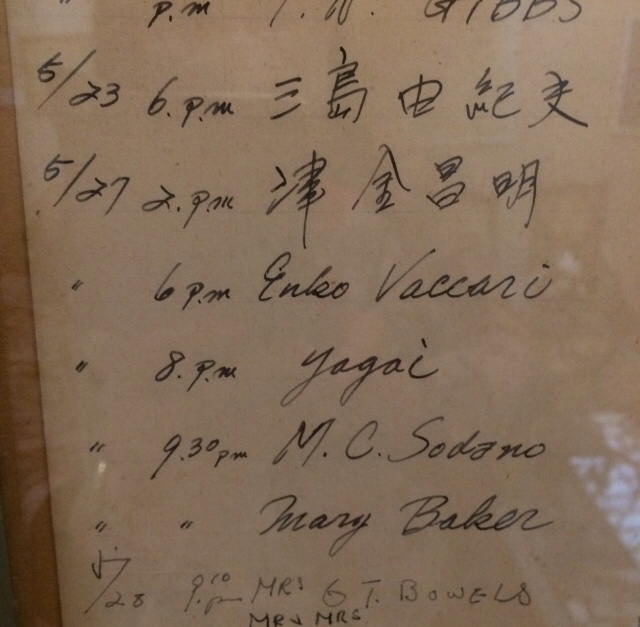 " p.m T. W. GIBBS
5/23 6.p.m 三島由紀夫
5/27 2.p.m 津金昌明
" 6p.m Enko Vaccari
" 8.p.m yagai
" 9.30pm M. C. Sodano
" " Mary Baker
5/28 9.10 pm MRS G T. BOWELS
MR & MRS